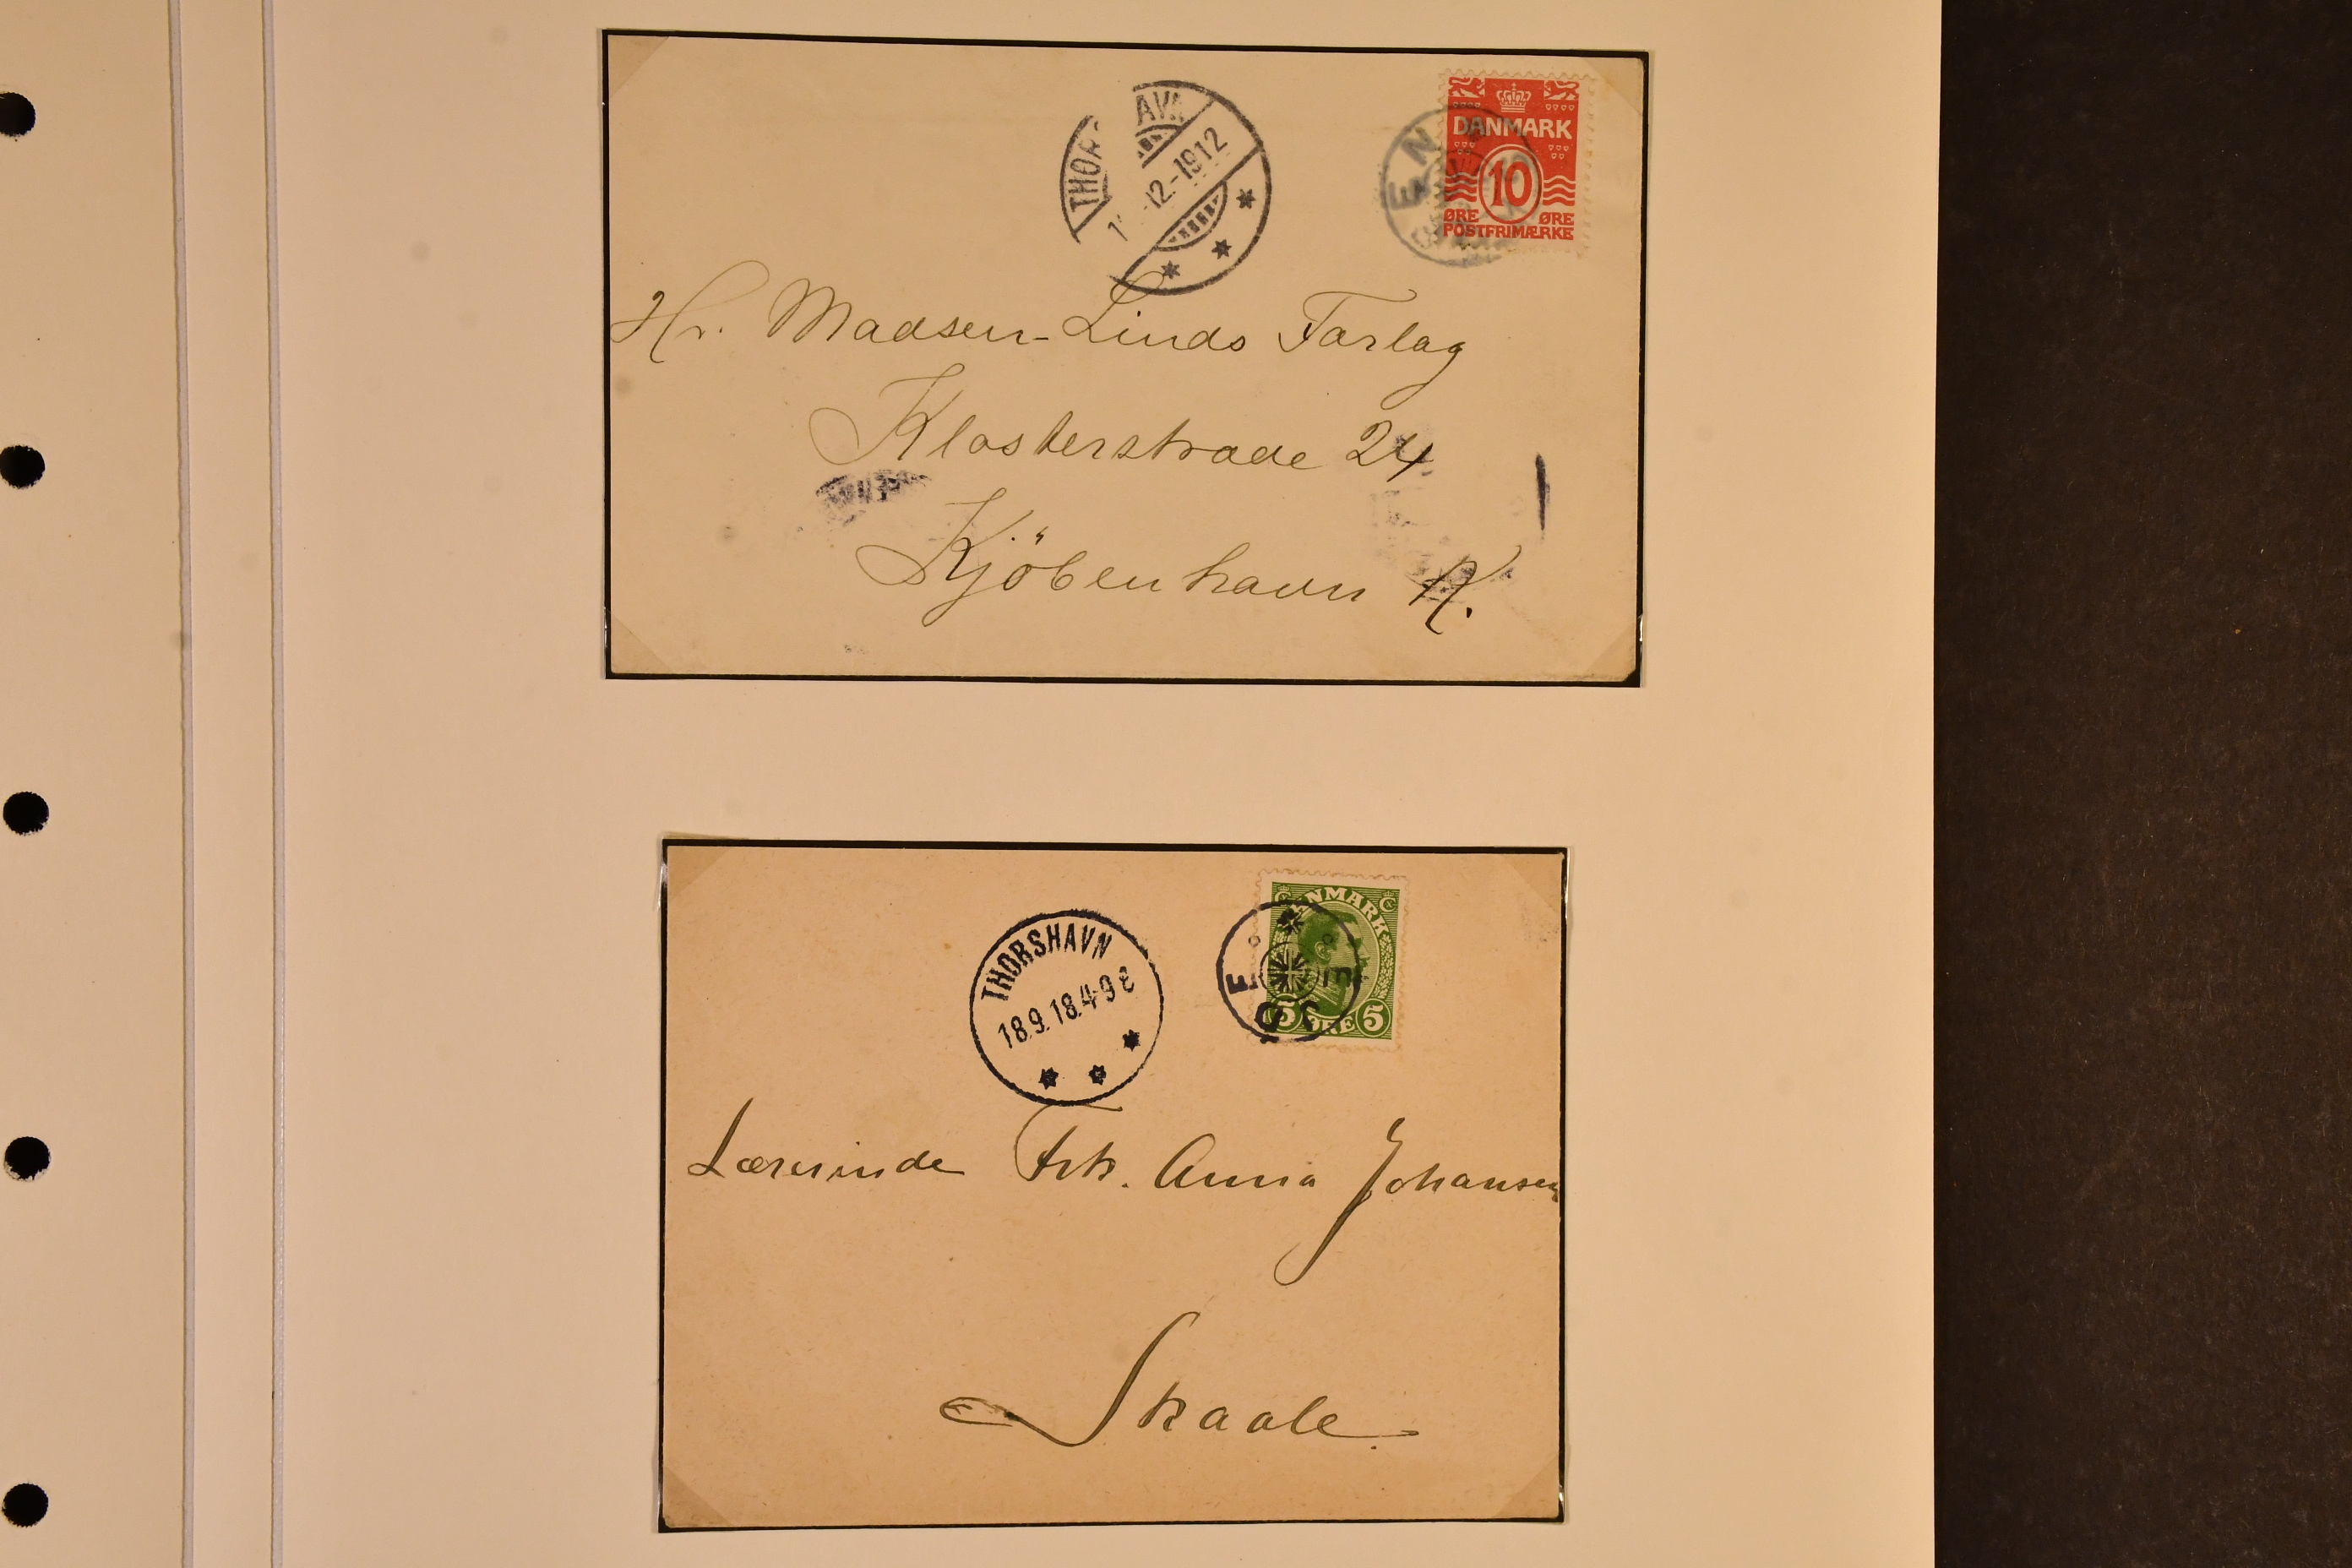 THOR AV
12.-1912
EN
DANMARK
10
ØRE ØRE
POSTFRIMÆRKE
Hr. Madsen-Linds Forlag
Klosterstrade 24
Kjöbenhavn K.
THORSHAVN
18.9.18.4-9 E
NMARK
5 ØRE 5
Lærerinde Frk. Anna Johansen
Skaale.